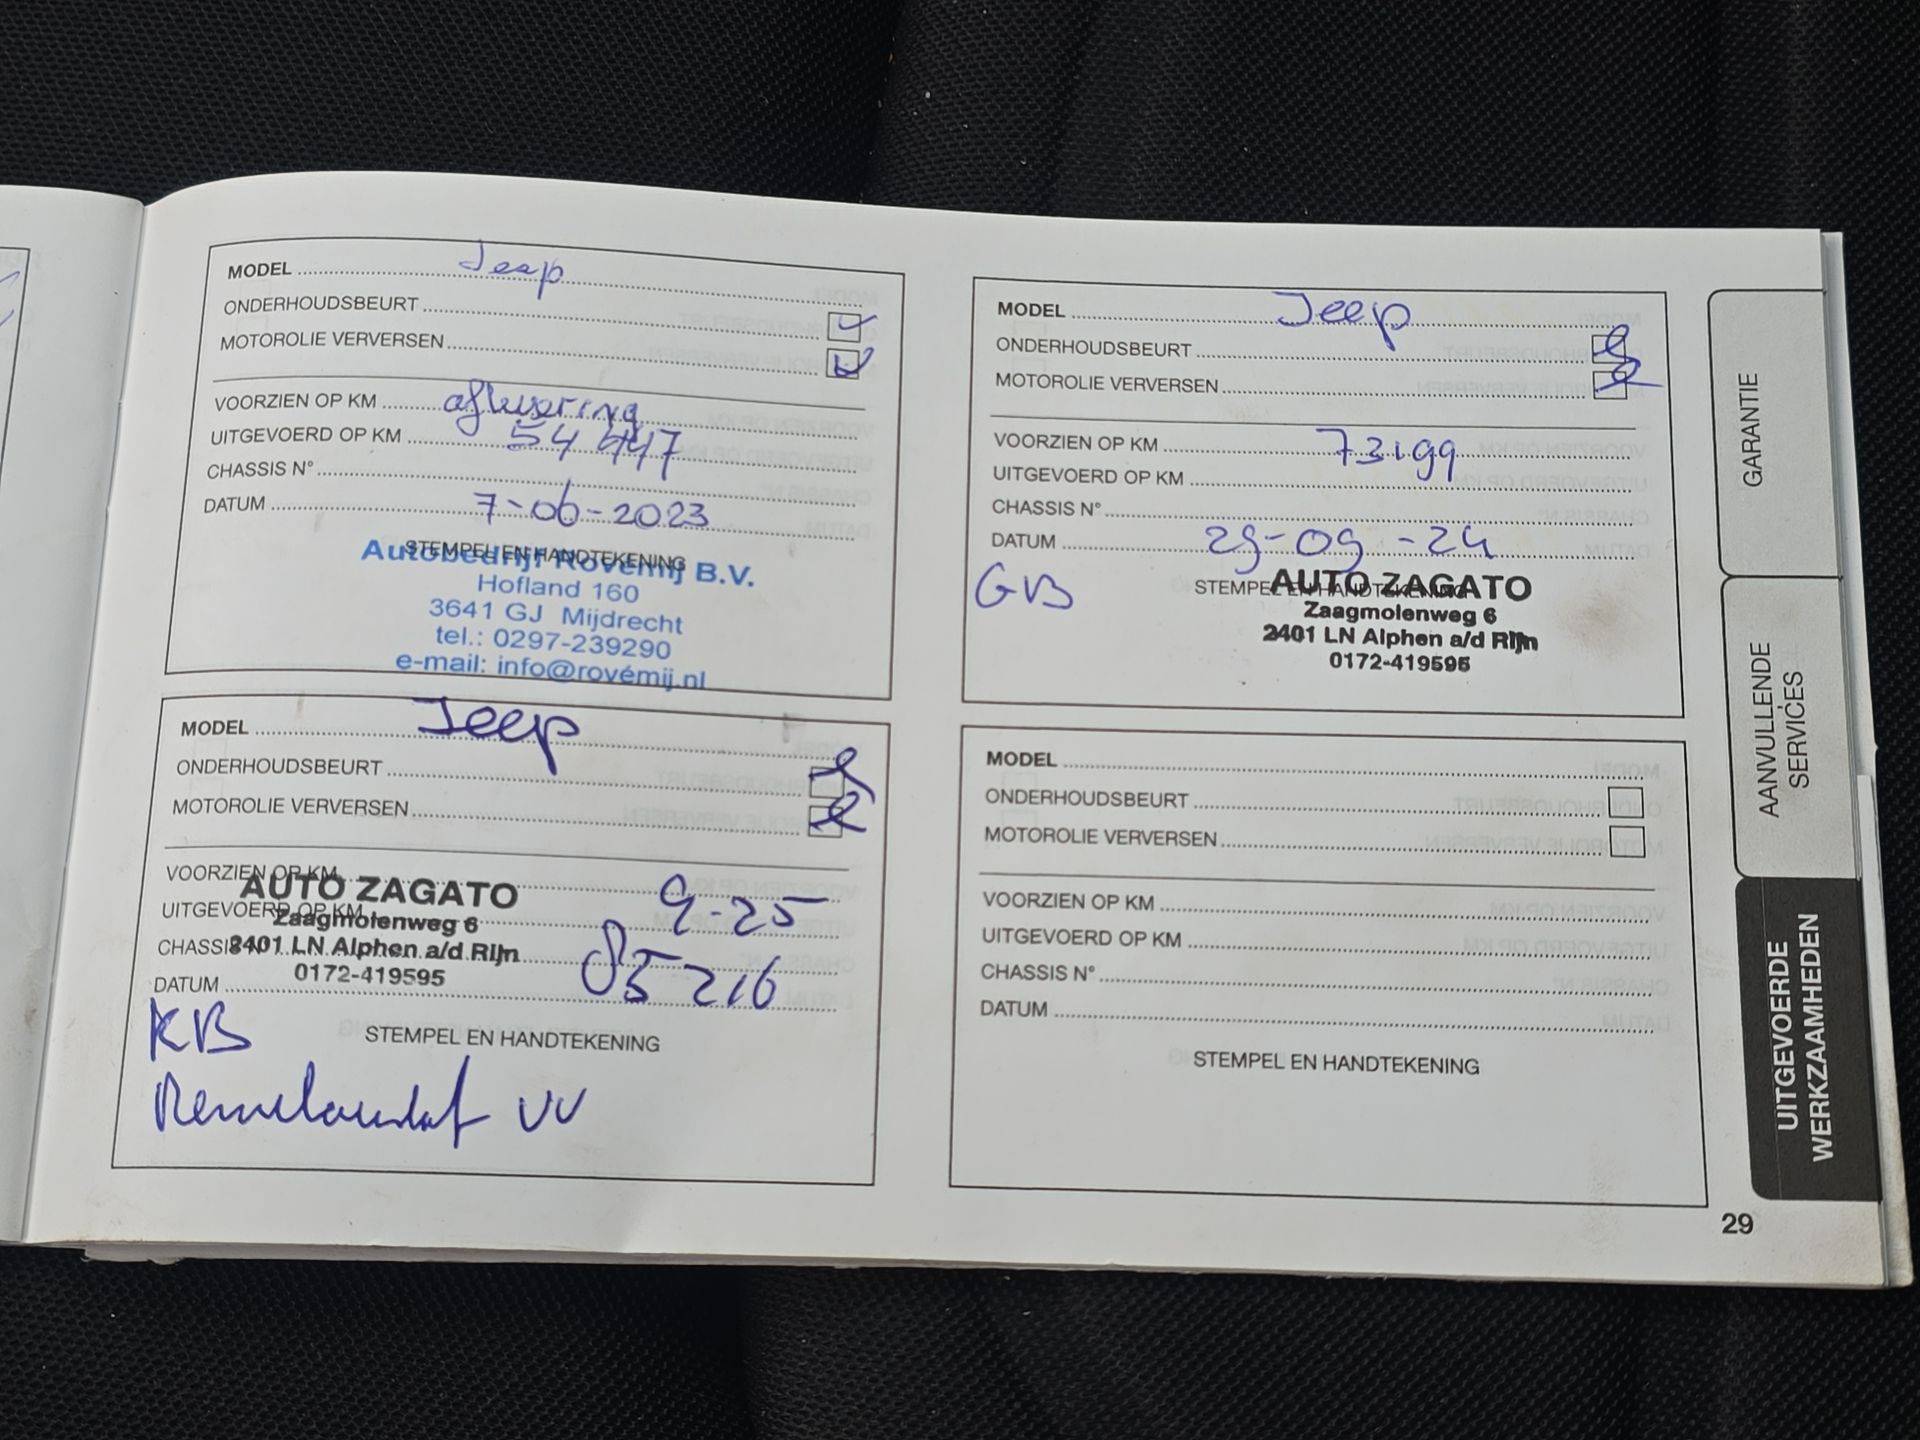 MODEL Jeep
ONDERHOUDSBEURT
MOTOROLIE VERVERSEN
VOORZIEN OP KM aflevering
UITGEVOERD OP KM 54 447
CHASSIS N°
DATUM 7-06-2023
STEMPEL EN HANDTEKENING
Autobedrijf Rovémij B.V.
Hofland 160
3641 GJ Mijdrecht
tel.: 0297-239290
e-mail: info@rovémij.nl
MODEL Jeep
ONDERHOUDSBEURT
MOTOROLIE VERVERSEN
VOORZIEN OP KM
UITGEVOERD OP KM 9-25
CHASSIS N°
DATUM 85216
AUTO ZAGATO
Zaagmolenweg 6
2401 LN Alphen a/d Rijn
0172-419595
KB
STEMPEL EN HANDTEKENING
VV
MODEL Jeep
ONDERHOUDSBEURT
MOTOROLIE VERVERSEN
VOORZIEN OP KM 73199
UITGEVOERD OP KM
CHASSIS N°
DATUM 29-09-24
GB
STEMPEL EN HANDTEKENING
AUTO ZAGATO
Zaagmolenweg 6
2401 LN Alphen a/d Rijn
0172-419595
MODEL
ONDERHOUDSBEURT
MOTOROLIE VERVERSEN
VOORZIEN OP KM
UITGEVOERD OP KM
CHASSIS N°
DATUM
STEMPEL EN HANDTEKENING
GARANTIE
AANVULLENDE
SERVICES
UITGEVOERDE
WERKZAAMHEDEN
29